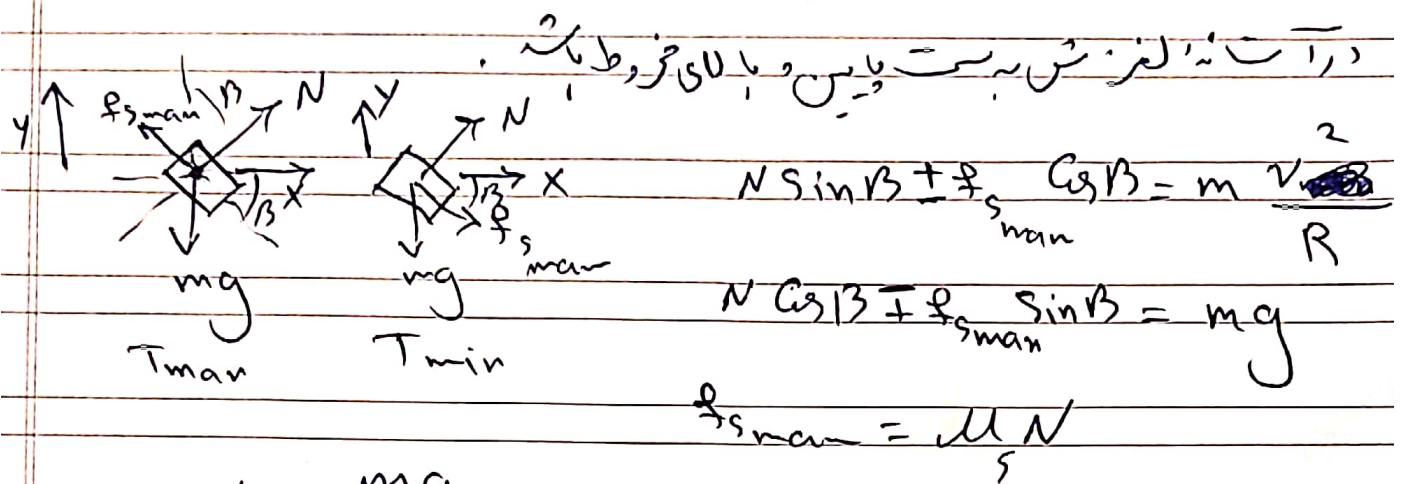 در آستانهٔ لغزش به سمت پایین و بالای مخروط باشد.
y fsmax β N y N
x β x β fsmax
mg mg
Tmax Tmin
N Sinβ ± fsmax Cosβ = m v²/R
N Cosβ ∓ fsmax Sinβ = mg
fsmax = μsN
mg